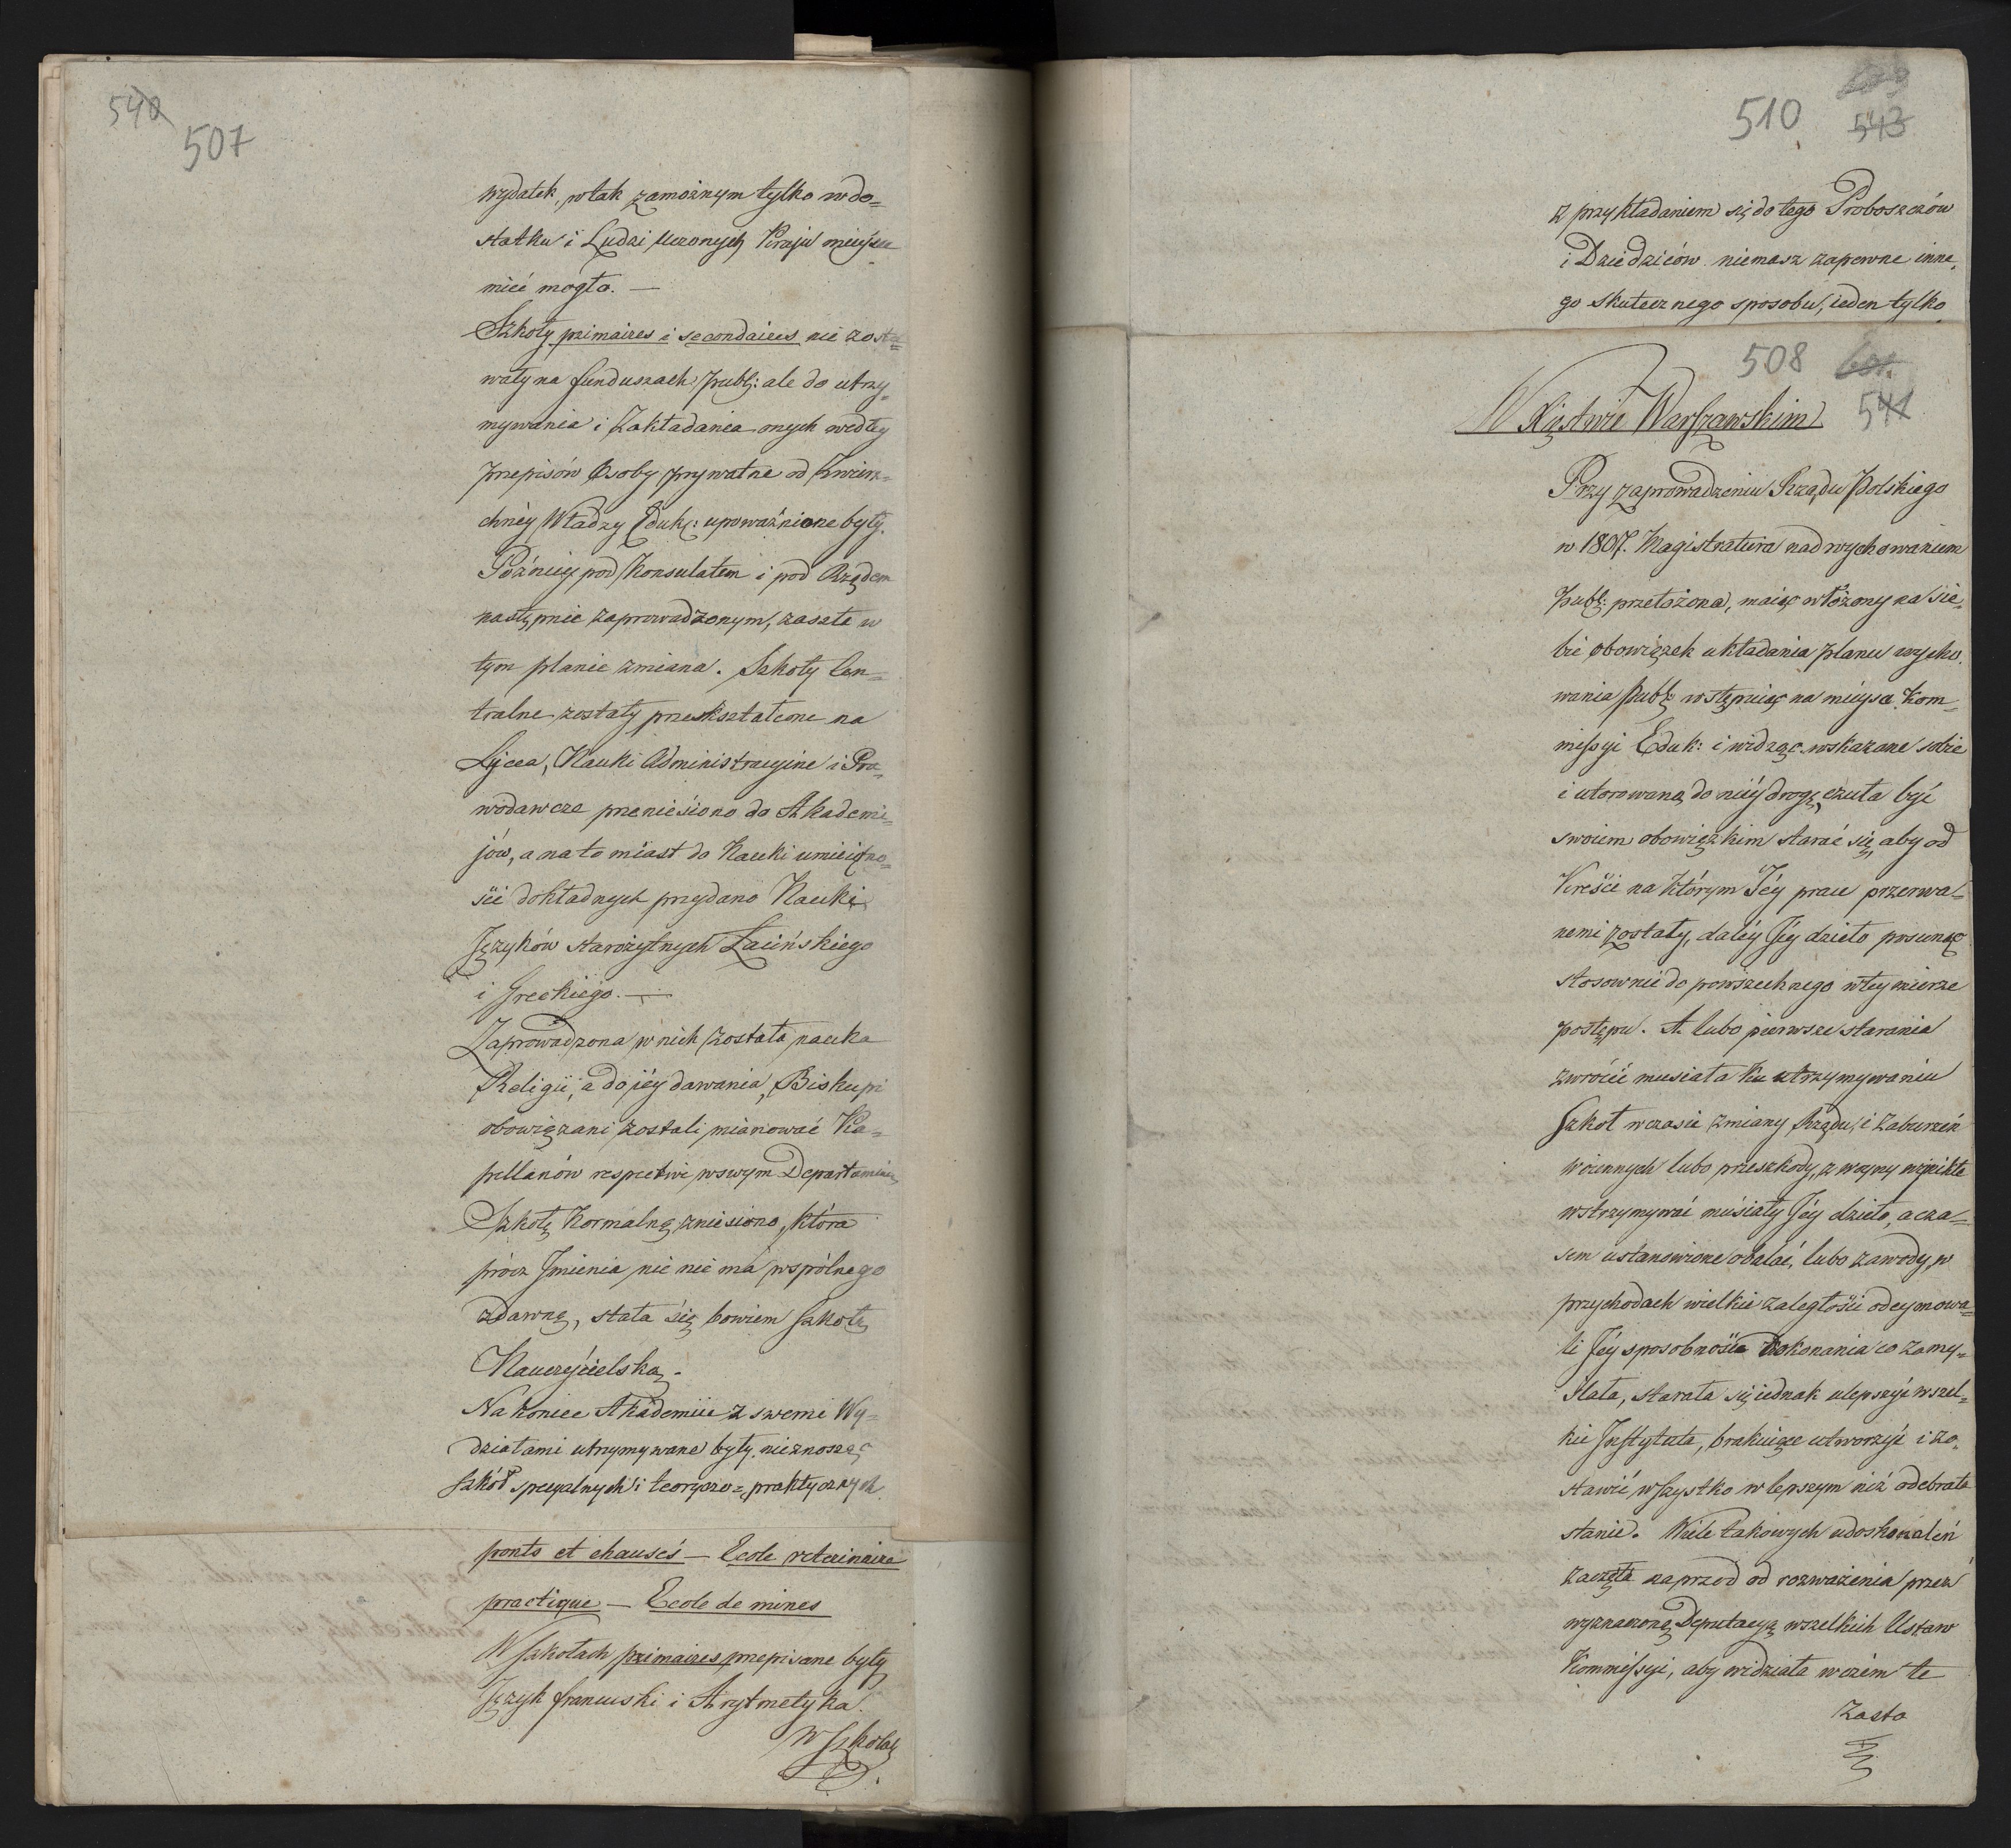 540
507
wydatek, w tak zamożnym tylko w do=
statku i Ludzi Uczonych Kraju mieysce
mieć mogło. —
Szkoły primaires i secondaires nie zosta=
wały na funduszach Publ: ale do utrzy=
mywania i Zakładania onych według
przepisów Osoby prywatne od Zwierz=
chnéy Władzy Eduk: upoważnione były.
Poźniey pod Konsulatem i pod Rządem
następnie zaprowadzonym, zaszła w
tym planie zmiana. Szkoły Cen=
tralne zostały przekształcone na
Lycea, Nauki Administracyine i Pra=
wodawcze przeniesiono do Akademi=
jów, a nato miast do Nauki umieiętno=
ści dokładnych przydano Naukę
Języków starożytnych Łacińskiego
i Greckiego. —
Zaprowadzona w nich została nauka
Religii, a do iéy dawania, Biskupi
obowiązani zostali mianować Ka=
pellanów respective w swym Departamencie
Szkołę Normalną zniesiono, która
prócz Jmienia nic nie ma wspólnego
z dawną, stała się bowiem szkołą
Nauczycielską.
Na koniec Akademiie z swemi Wy=
działami utrzymywane były nieznosząc
szkół specyalnych i teoryczo=praktycznych
ponts et chausés — Ecole veterinaire
practique — Ecole de mines
W szkołach primaires przepisane były
Język francuski i Arytmetyka.
W szkołach
510
543
z przykładaniem się do tego Proboszczów
i Dziedziców niemasz zapewne inne=
go skutecznego sposobu, ieden tylko
508
601.
541
W Xięstwie Warszawskim
Przy zaprowadzeniu Rządu Polskiego
w 1807. Magistratura nad wychowaniem
Publ: przełożona, maiąc włożony na sie=
bie obowiązek układania planu wycho=
wania Publ: wstępuiąc na mieysce Kom=
missyi Eduk: i widząc wskazane sobie
i utorowaną do niéy drogę, czuła być
swoiem obowiązkiem starać się, aby od
Kreści na którym Jéy prace przerwa=
nemi zostały, daléy Jéy dzieło posunąć
stosownie do powszechnego w tey mierze
postępu. A lubo pierwsze starania
zwrócić musiała ku utrzymywaniu
Szkół w czasie zmiany Rządu, i zaburzeń
woiennych lubo przeszkody, z woyny wynikłe
wstrzymywać musiały Jéy dzieło, a cza=
sem ustanowione obalać, lubo zawody, w
przychodach wielkie zaległości odeymowa=
li Jéy sposobność dokonania co zamy=
ślała, starała się iednak ulepszyć wszel=
kie Jnstytuta, brakuiące utworzyć i zo=
stawić wszystko w lepszym niż odebrała
stanie. Wiele takowych udoskonaleń
zaczęła naprzod od rozważenia przez
wyznaczoną Deputacyą wszelkich Ustaw
Kommissyi, aby widziała w czém te
Zasto